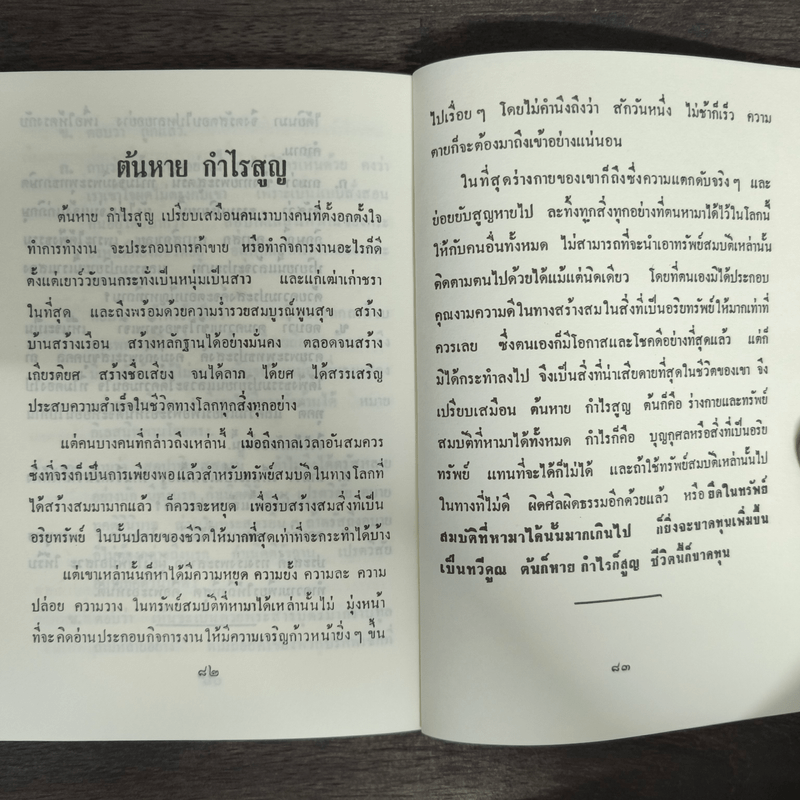 ต้นหาย กำไรสูญ
ต้นหาย กำไรสูญ เปรียบเสมือนคนเราบางคนที่ตั้งอกตั้งใจ
ทำการทำงาน จะประกอบการค้าขาย หรือทำกิจการงานอะไรก็ดี
ตั้งแต่เยาว์วัยจนกระทั่งเป็นหนุ่มเป็นสาว และแก่เฒ่าเก่าชรา
ในที่สุด และถึงพร้อมด้วยความร่ำรวยสมบูรณ์พูนสุข สร้าง
บ้านสร้างเรือน สร้างหลักฐานได้อย่างมั่นคง ตลอดจนสร้าง
เกียรติยศ สร้างชื่อเสียง จนได้ลาภ ได้ยศ ได้สรรเสริญ
ประสบความสำเร็จในชีวิตทางโลกทุกสิ่งทุกอย่าง
แต่คนบางคนที่กล่าวถึงเหล่านี้ เมื่อถึงกาลเวลาอันสมควร
ซึ่งที่จริงก็เป็นการเพียงพอแล้วสำหรับทรัพย์สมบัติในทางโลกที่
ได้สร้างสมมามากแล้ว ก็ควรจะหยุด เพื่อรีบสร้างสมสิ่งที่เป็น
อริยทรัพย์ ในบั้นปลายของชีวิตให้มากที่สุดเท่าที่จะกระทำได้บ้าง
แต่เขาเหล่านั้นก็หาได้มีความหยุด ความยั้ง ความละ ความ
ปล่อย ความวาง ในทรัพย์สมบัติที่หามาได้เหล่านั้นไม่ มุ่งหน้า
ที่จะคิดอ่านประกอบกิจการงานให้มีความเจริญก้าวหน้ายิ่งๆ ขึ้น
๘๒
ไปเรื่อยๆ โดยไม่คำนึงถึงว่า สักวันหนึ่ง ไม่ช้าก็เร็ว ความ
ตายก็จะต้องมาถึงเข้าอย่างแน่นอน
ในที่สุดร่างกายของเขาก็ถึงซึ่งความแตกดับจริงๆ และ
ย่อยยับสูญหายไป ละทิ้งทุกสิ่งทุกอย่างที่ตนหามาได้ไว้ในโลกนี้
ให้กับคนอื่นทั้งหมด ไม่สามารถที่จะนำเอาทรัพย์สมบัติเหล่านั้น
ติดตามตนไปด้วยได้แม้แต่นิดเดียว โดยที่ตนเองมิได้ประกอบ
คุณงามความดีในทางสร้างสมในสิ่งที่เป็นอริยทรัพย์ให้มากเท่าที่
ควรเลย ซึ่งตนเองก็มีโอกาสและโชคดีอย่างที่สุดแล้ว แต่ก็
มิได้กระทำลงไป จึงเป็นสิ่งที่น่าเสียดายที่สุดในชีวิตของเขา จึง
เปรียบเสมือน ต้นหาย กำไรสูญ ต้นก็คือ ร่างกายและทรัพย์
สมบัติที่หามาได้ทั้งหมด กำไรก็คือ บุญกุศลหรือสิ่งที่เป็นอริย
ทรัพย์ แทนที่จะได้ก็ไม่ได้ และถ้าใช้ทรัพย์สมบัติเหล่านั้นไป
ในทางที่ไม่ดี ผิดศีลผิดธรรมอีกด้วยแล้ว หรือยึดในทรัพย์
สมบัติที่หามาได้นั้นมากเกินไป ก็ยิ่งจะขาดทุนเพิ่มขึ้น
เป็นทวีคูณ ต้นก็หาย กำไรก็สูญ ชีวิตนี้ก็ขาดทุน
๘๓